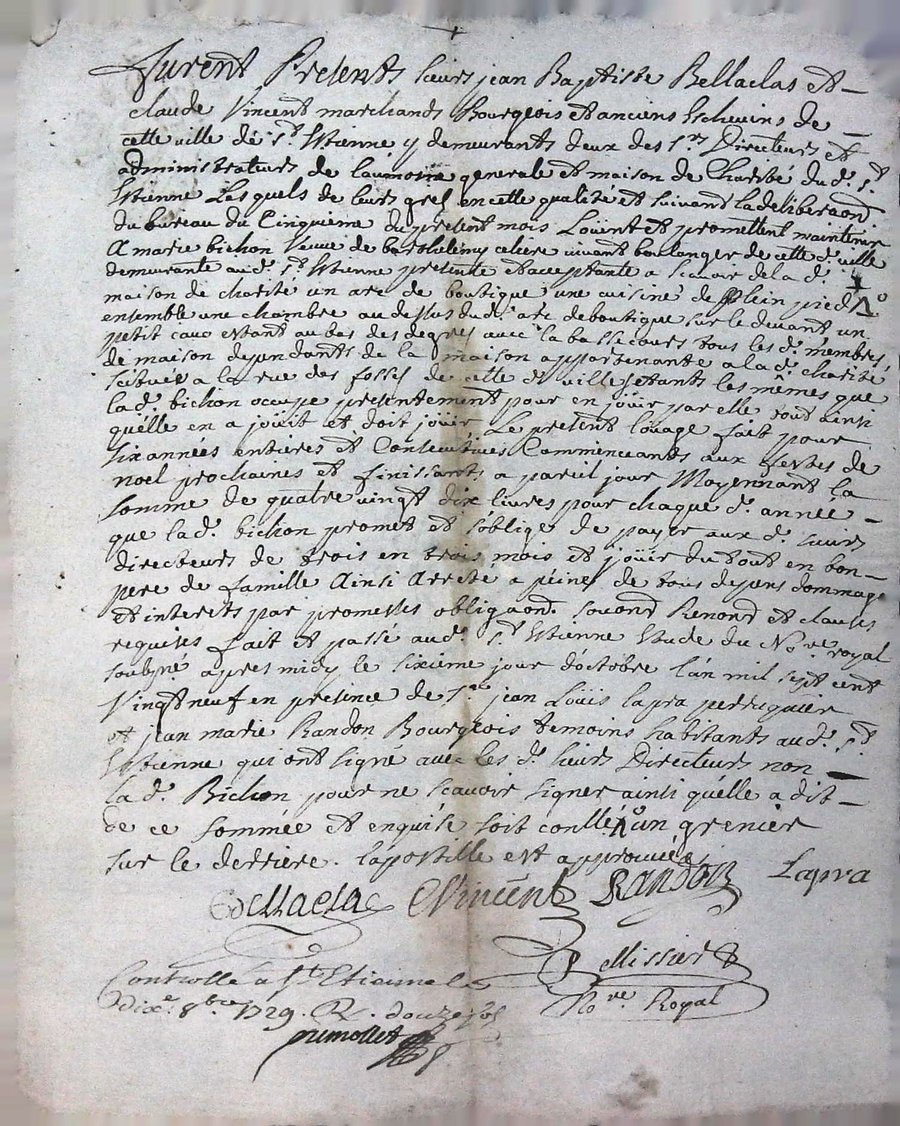 furent Presents sieurs jean Baptiste Bellaclas et
claude Vincent marchands Bourgeois et anciens Eschevins de
cette ville de St. Estienne y demeurants deux des Srs Directeurs et
administrateurs de laumosne generale et maison de Charité du d. St.
Estienne Lesquels de leurs grés en cette qualité et suivant la deliberaond
du bureau du Cinquieme du present mois Loüent et promettent maintenir
A marie bichon Veuve de barthelemy celiere vivant boulanger de cette d. ville
demeurante aud. St. Estienne presente et acceptante a scavoir de la d.
maison de charité un arc de boutique une cuisine de plein pied
ensemble une chambre au dessus dud. arc de boutique sur le devant un
petit cave estant au bas des degres avec la basse cours tous les d. membres
de maison dependants de la maison appartenante a la d. charité
scituée a la rue des fossés de cette d. ville estants les mêmes que
la d. bichon occupe presentement pour en joüir par elle tout ainsi
quélle en a joüit et doit joüir Le present loüage fait pour
six années entieres et Consecutives Commencants aux festes de
noel prochaines et finissants a pareil jour Moyennant la
somme de quatre vingt dix livres pour chaque d. année
que la d. bichon promet et s'oblige de payer aux d. sieurs
directeurs de trois en trois mois et joüir du tout en bon
pere de famille Ainsi Arreté a peine de tous depens dommage
et interets par promesses obligaond. soond Renond et clauses
requises fait et passé aud. St. Estienne Etude du Nore royal
soubne apres midy le sixieme jour doctobre l'an mil sept cent
Vingt neuf en presence de Sr. jean Loüis Lapra perruquier
et jean marie Randon Bourgeois temoins habitants aud. St.
Estienne qui ont signé avec les d. sieurs Directeurs non
la d. Bichon pour ne scavoir signer ainsi quélle a dit
de ce sommée et enquise un grenier
sur le derriere. lapostille est approuvée
Bellaclas CVincent Randon Lapra
Pellissier
Nore Royal
Controllé a St. Etienne le
dixe 8bre 1729. R. douze sols